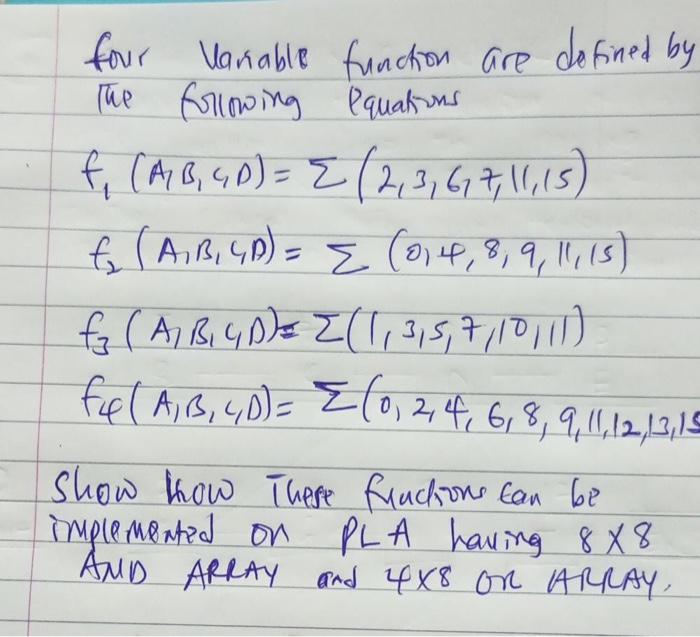 four Variable function are defined by
The following Equations
f₁ (A,B,C,D) = Σ (2,3,6,7,11,15)
f₂ (A,B,C,D) = Σ (0,4,8,9,11,15)
f₃ (A,B,C,D) = Σ(1,3,5,7,10,11)
f4 (A,B,C,D) = Σ(0,2,4,6,8,9,11,12,13,15
Show how These functions can be
implemented on PLA having 8X8
AND ARRAY and 4X8 OR ARRAY.